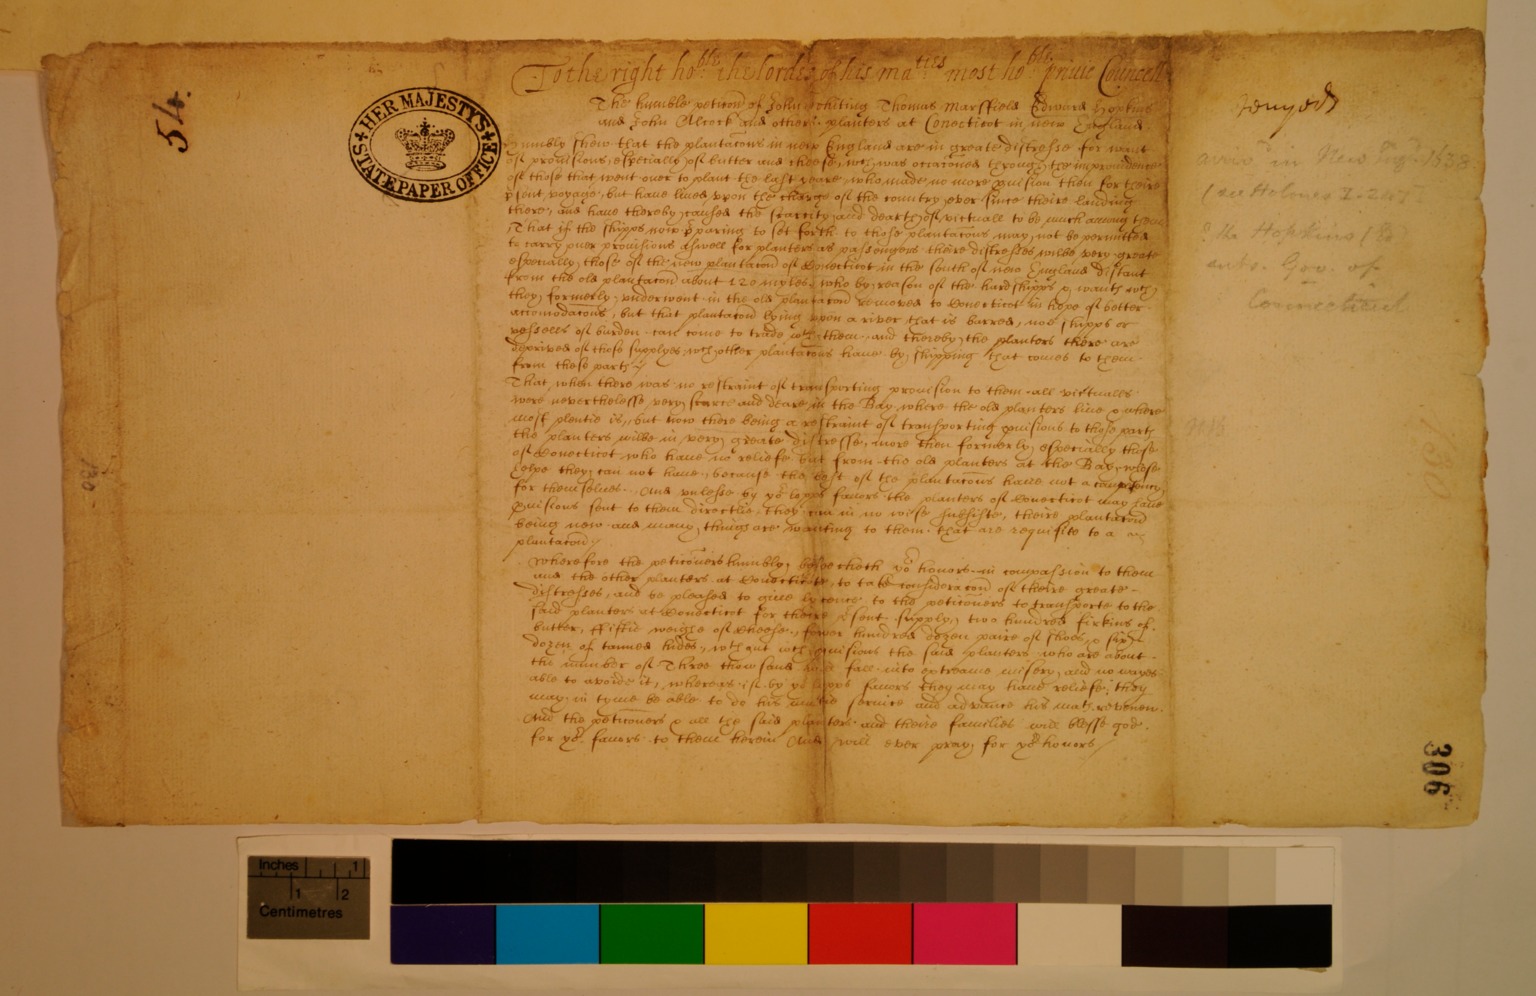 54.
HER MAJESTY'S
STATE PAPER OFFICE
To the right ho:ble the lordes of his ma:ties most ho:ble privie Councell
The humble peticon of John Whiting Thomas Marsffield Edward Hopkins
and John Alcock and others planters at Conecticot in new England
Humbly shew that the plantacons in new England are in greate distresse for want
of provisions, especially of butter and cheese, wch was occacioned through the improvidence
of those that went over to plant the last yeare, who made no more pvision then for theire
psent voyage, but have lived upon the charge of the country ever since theire landing
there, and have thereby caused the scarcity and dearth of victuall to be much among them
That if the shipps now pparing to set forth to those plantacons may not be permitted
to carry over provisions aswell for planters as passongers theire distresses wilbe very greate
especially those of the new plantacon of Conecticot in the south of new England distant
from the old plantacon about 120 myles, who by reason of the hardshipps & wants wch
they formerly underwent in the old plantacon removed to Conecticot in hope of better
accomodacons, but that plantacon lying upon a river that is barred, noe shipps or
vessells of burden can come to trade wth them and thereby the planters there are
deprived of those supplyes wch other plantacons have by shipping that comes to them
from these parts
That when there was no restraint of transporting provision to them all victualls
were neverthelesse very scarce and deare in the Bay where the old planters live & where
most plentie is, but now there being a restraint of transporting pvisions to those parts
the planters wilbe in very greate distresse, more then formerly especially those
of Conecticot who have no reliefe but from the old planters at the Bay, whose
helpe they can not have, because the best of the plantacons have not a competency
for themselves. And unlesse by yor lopps favors the planters of Conecticot may have
pvisions sent to them directlie, they can in no wise subsiste, theire plantacon
being new and many things are wanting to them that are requisite to a
plantacon
Wherefore the peticoners humbly beseecheth yor honors in compassion to them
and the other planters at Conecticote, to take consideracon of theire greate
distresses, and be pleased to give lycence to the peticoners to transporte to the
said planters at Conecticot for theire psent supply, two hundred firkins of
butter, ffiftie weighe of cheese, fower hundred dozen paire of shoes, & sixty
dozen of tanned hides, wthout wch pvisions the said planters who are about
the number of Three thowsand will fall into extreame misery, and no wayes
able to avoide it, whereas if by yor lopps favors they may have reliefe, they
may in tyme be able to do his matie service and advance his mats. revenew.
And the peticoners & all the said planters and theire families will blesse god
for yor favors to them herein And will ever pray for yor honors
denyed
arriv'd in New Eng 1638
Hopkins
Gov. of
Connecticut
130
306
Inches 1
1 2
Centimetres